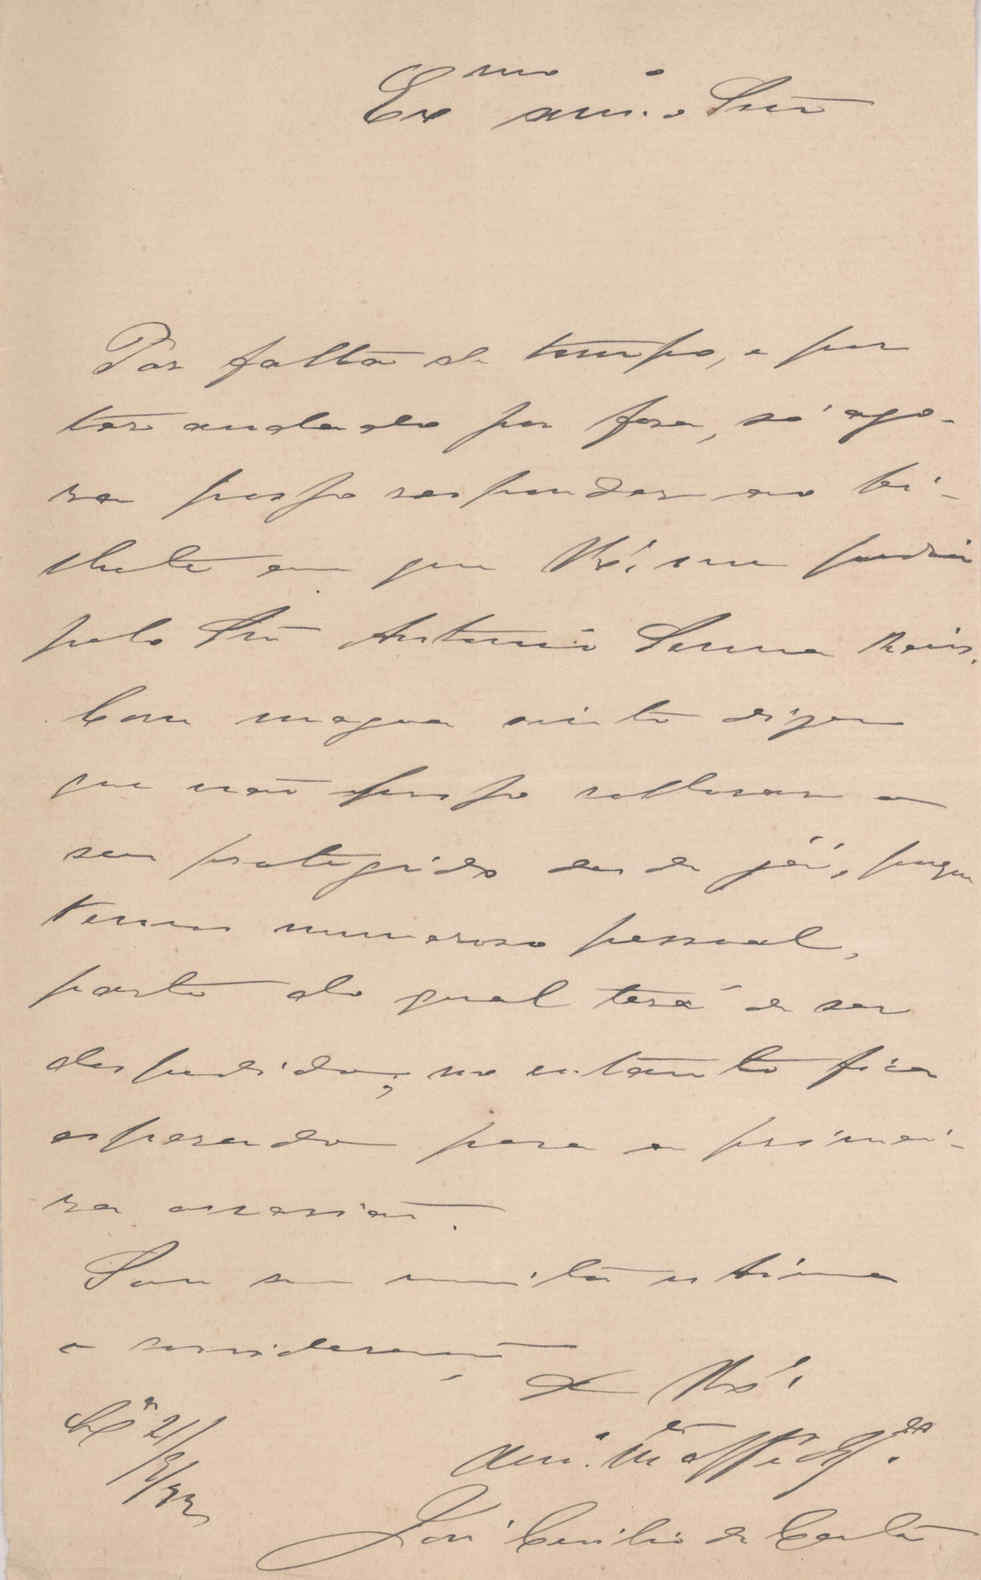 Ex.mo am.o e Snr.
Por falta de tempo, e por
ter andado por fora, só ago-
ra posso responder ao bi-
lhete em que V.cê me pedia
pelo Snr. Antonio Senna Reis.
Com magua sinto dizer
que não posso collocar o
seu protegido desde já, porque
temos numeroso pessoal,
parte do qual terá de ser
despedido; no entanto fica
esperando para a primei-
ra occasião.
Sou com muita estima
e consideração
De V.cê
Am.o
José Cecilio da Costa